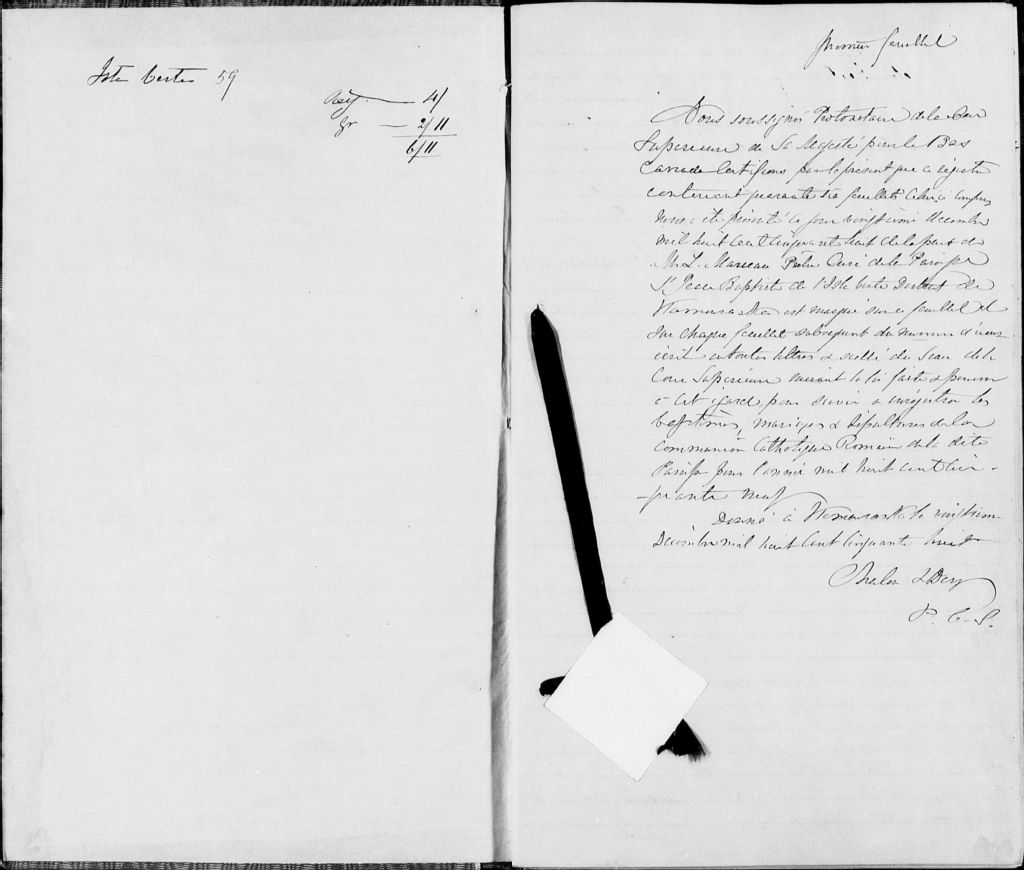 Isle Verte 59
Reg. — 4/
Gr — 2/11
6/11
premier feuillet
Nous soussignés Protonotaire de la Cour
Superieure de Sa Majesté pour le Bas
Canada Certifions par le présent que ce régistre
contenant quarante six feuillets celui ci compris
nous a été présenté ce jour vingtième Décembre
mil huit cent cinquante huit de la part de
Mr L. Marceau Prêtre Curé de la Paroisse
St Jean Baptiste de l'Isle Verte District de
Kamouraska est marqué sur ce feuillet &
sur chaque feuillet subséquent du numero d'iceux
écrit en toutes lettres & scellé du Sceau de la
Cour Superieure suivant la loi faite & pourvue
à cet égard, pour servir a enrégistrer les
baptêmes, mariages & sépultures de la
communion Catholique Romaine de la dite
Paroisse pour l'année mil huit cent cin-
quante neuf
Donné à Kamouraska le vingtieme
Décembre mil huit Cent Cinquante huit
& Dery
P. C. S.